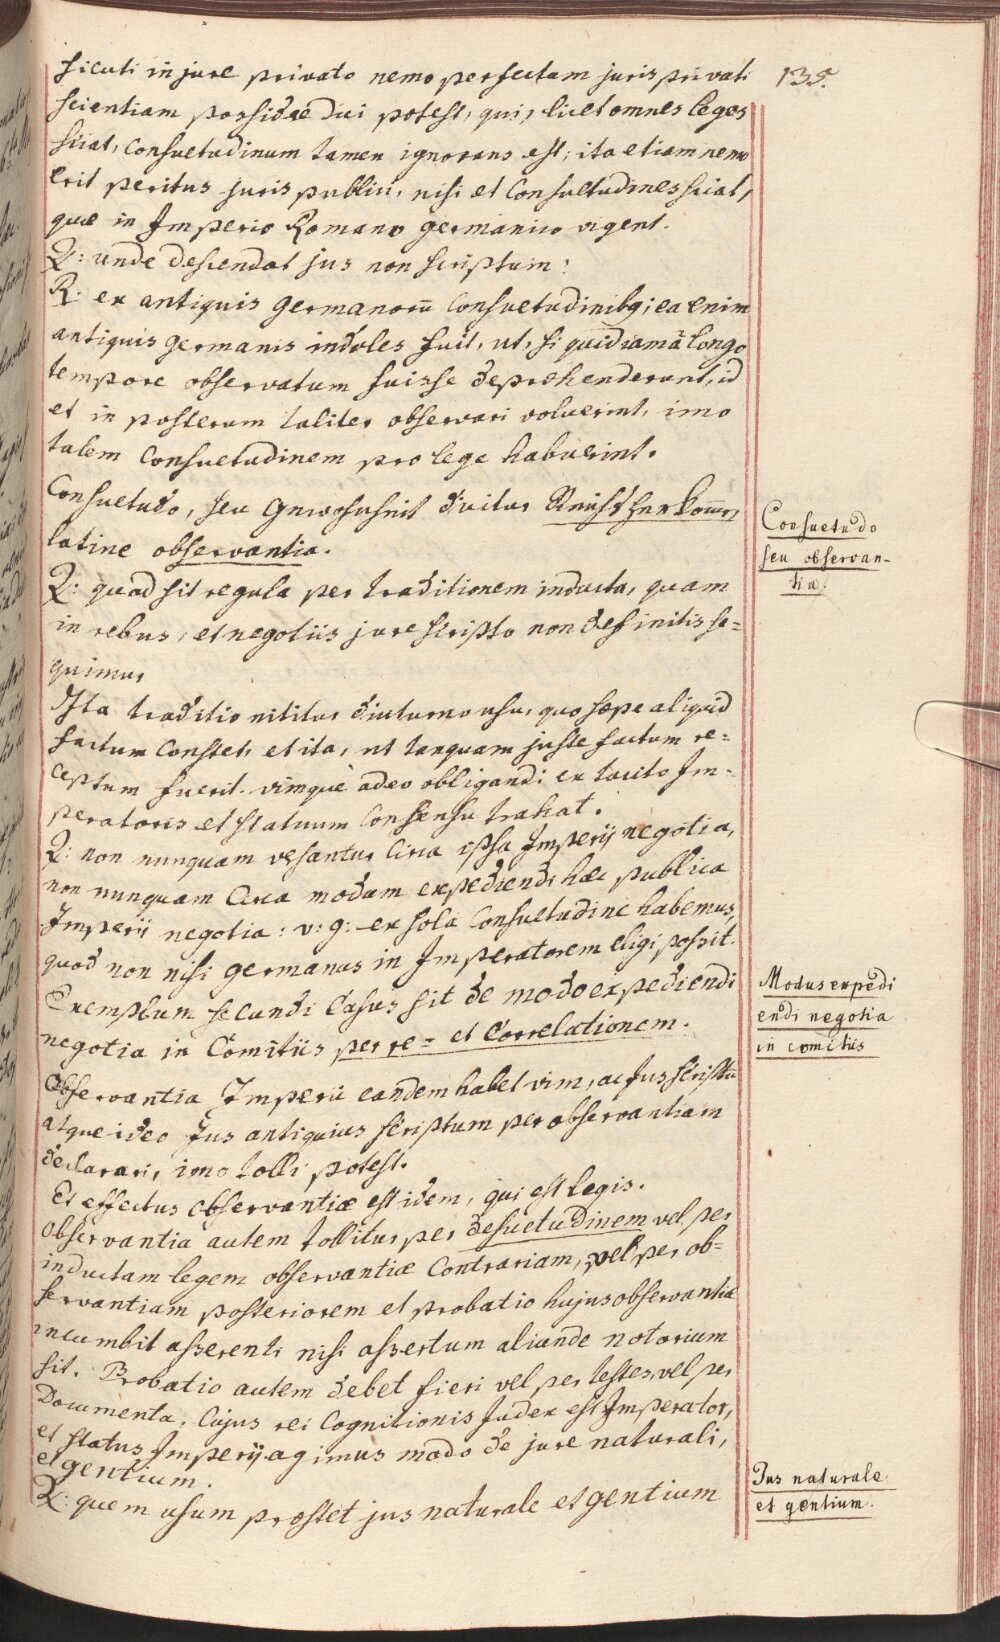 135.
sicuti in jure privato nemo perfectam juris privati
scientiam possidere dici potest, qui, licet omnes leges
sciat, consuetudinum tamen ignorans est; ita etiam nemo
erit peritus juris publici, nisi et Consuetudines sciat,
quæ in Imperio Romano germanico vigent.
Q: unde descendat jus non scriptum?
R: ex antiquis germanorū Consuetudinibq; ea enim
antiquis germanis indoles fuit, ut, si quid jam à longo
tempore observatum fuisse deprehenderunt, id
et in posterum taliter observari voluerint, imo
talem Consuetudinem pro lege habuerint.
Consuetudo, seu Gewohnheit dicitur Reichsherkom̄en,
latine observantia.
Consuetudo
seu observan-
tia.
Q: quod sit regula per traditionem inducta, quam
in rebus, et negotiis jure scripto non definitis se=
quimur,
Ita traditio nititur diuturno usu, quo sæpe aliquid
factum Constet, et ita, ut tanquam juste factum re=
ceptum fuerit. vimque adeo obligandi ex tacito Im=
peratoris et statuum Consensu trahat.
Q: non nunquam versantur Circa ipsa Imperij negotia,
non nunquam Circa modum expediendi hæc publica
Imperii negotia: v: g: ex sola Consuetudine habemus,
quod non nisi germanus in Imperatorem eligi possit.
Exemplum secundi Casus sit de modo expediendi
negotia in Comitiis per re= et Correlationem.
Modus expedi
endi negotia
in comitiis
Observantia Imperii eandem habet vim, ac Jus scriptū
atque ideo Jus antiquius scriptum per observantiam
declarari, imo tolli potest.
Et effectus observantiæ est idem, qui est legis.
Observantia autem tollitur per desuetudinem vel per
inductam legem observantiæ Contrariam, vel per ob=
servantiam posteriorem et probatio hujus observantiæ
incumbit asserenti nisi assertum aliunde notorium
sit. Probatio autem debet fieri vel per testes, vel per
Documenta, Cujus rei Cognitionis Judex est Imperator,
et status Imperij agimus modo de jure naturali,
et gentium.
Q: quem usum prostet jus naturale et gentium
Jus naturale
et gentium.